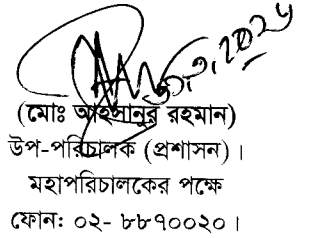 (মোঃ আহসানুর রহমান)
উপ-পরিচালক (প্রশাসন)।
মহাপরিচালকের পক্ষে
ফোনঃ ০২- ৮৮৭০০২০।